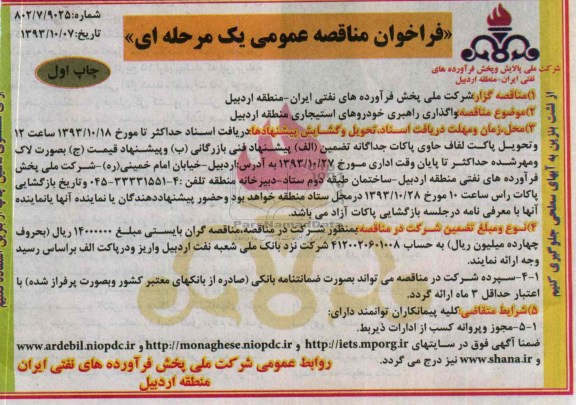 شماره:۸۰۲/۷/۹۰۲۵
تاریخ:۱۳۹۳/۱۰/۰۷
«فراخوان مناقصه عمومی یک مرحله ای»
چاپ اول
شرکت ملی پالایش وپخش فرآورده های
نفتی ایران-منطقه اردبیل
۱)مناقصه گزار:شرکت ملی پخش فرآورده های نفتی ایران-منطقه اردبیل
۲)موضوع مناقصه:واگذاری راهبری خودروهای استیجاری منطقه اردبیل
۳)محل،زمان ومهلت دریافت اسناد،تحویل وگشایش پیشنهادها:دریافت اسناد حداکثر تا مورخ ۱۳۹۳/۱۰/۱۸ ساعت ۱۲
وتحویل پاکت لفاف حاوی پاکات جداگانه تضمین (الف) پیشنهاد فنی بازرگانی (ب) وپیشنهاد قیمت (ج) بصورت لاک
ومهرشده حداکثر تا پایان وقت اداری مورخ ۱۳۹۳/۱۰/۲۷ به آدرس:اردبیل-خیابان امام خمینی(ره)-شرکت ملی پخش
فرآورده های نفتی منطقه اردبیل-ساختمان طبقه دوم ستاد-دبیرخانه منطقه تلفن:۴-۳۳۳۳۱۵۵۱-۰۴۵ وتاریخ بازگشایی
پاکات راس ساعت ۱۰ مورخ ۱۳۹۳/۱۰/۲۸ درمحل ستاد منطقه خواهد بود وحضور پیشنهاددهندگان یا نماینده آنها بانماینده
آنها با معرفی نامه درجلسه بازگشایی پاکات آزاد می باشد.
۴)نوع ومبلغ تضمین شرکت در مناقصه:بمنظور شرکت در مناقصه،مناقصه گران بایستی مبلغ ۱۴۰۰۰۰۰۰ ریال (بحروف
چهارده میلیون ریال) به حساب ۴۱۲۰۰۲۰۶۰۱۰۰۸ شرکت نزد بانک ملی شعبه نفت اردبیل واریز ودرپاکت الف براساس رسید
وجه ارائه نمایند.
۴-۱-سپرده شرکت در مناقصه می تواند بصورت ضمانتنامه بانکی (صادره از بانکهای معتبر کشور وبصورت پرفراژ شده) با
اعتبار حداقل ۳ ماه ارائه گردد.
۵)شرایط متقاضی:کلیه پیمانکاران توانمند دارای:
۵-۱-مجوز وپروانه کسب از ادارات ذیربط.
ضمنا آگهی فوق در سایتهای http://iets.mporg.ir و http://monaghese.niopdc.ir و www.ardebil.niopdc.ir
و www.shana.ir نیز درج می گردد.
روابط عمومی شرکت ملی پخش فرآورده های نفتی ایران
منطقه اردبیل
از نشت بنزین به آبهای سطحی جلوگیری کنیم